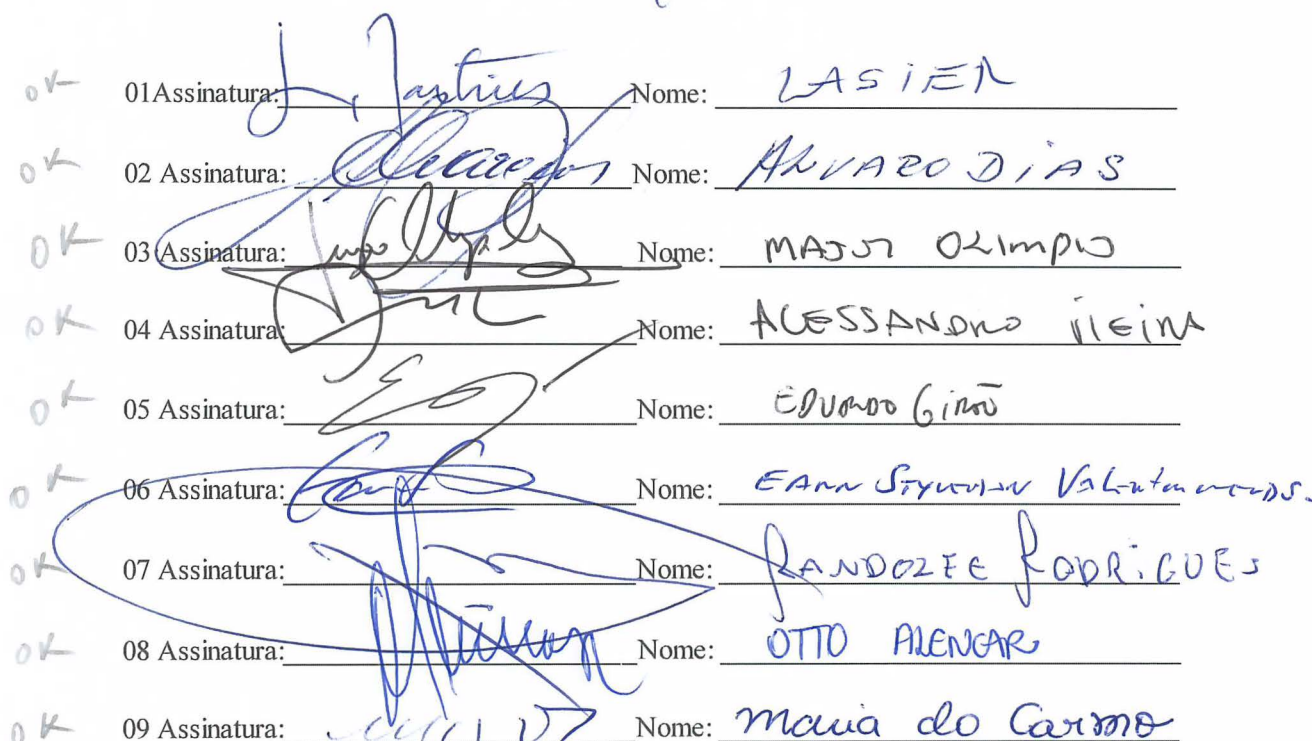 OK 01Assinatura: Nome: LASIER
OK 02 Assinatura: Nome: ALVARO DIAS
OK 03 Assinatura: Nome: MAJOR OLIMPIO
OK 04 Assinatura: Nome: ALESSANDRO VIEIRA
OK 05 Assinatura: Nome: EDUARDO GIRÃO
OK 06 Assinatura: Nome: EANN Styvenson Valentim
OK 07 Assinatura: Nome: RANDOLFE RODRIGUES
OK 08 Assinatura: Nome: OTTO ALENCAR
OK 09 Assinatura: Nome: Maria do Carmo